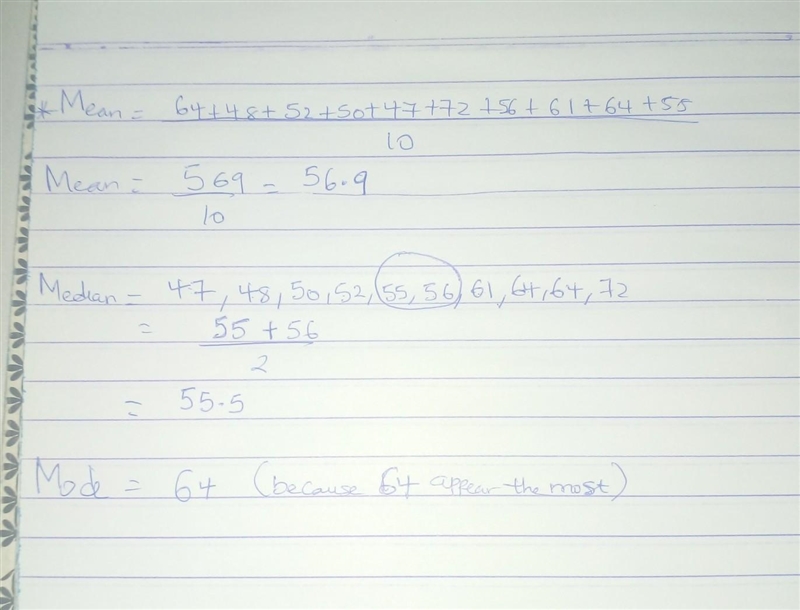 * Mean = 64+48+52+50+47+72+56+61+64+55
10
Mean = 569 = 56.9
10
Median = 47, 48, 50, 52, 55, 56, 61, 64, 64, 72
= 55 + 56
2
= 55.5
Mode = 64 (because 64 appear the most)